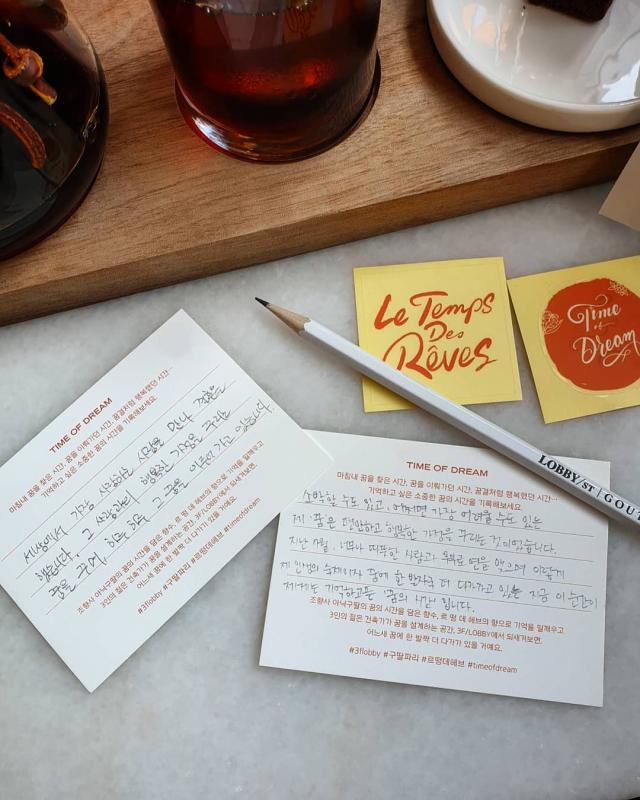 Le Temps
Des
Rêves
Time
of
Dream
LOBBY/ST | GOUT
TIME OF DREAM
마침내 꿈을 찾은 시간, 꿈을 이뤄가던 시간, 꿈결처럼 행복했던 시간…
기억하고 싶은 소중한 꿈의 시간을 기록해보세요.
세상에서 가장 사랑하는 사람을 만나 결혼을
했습니다. 그 사람과의 행복한 가정을 꾸리는
꿈을 꾸며, 하루 하루 그 꿈을 이루며 가고 있습니다.
조향사 아닉구딸의 꿈의 시간을 담은 향수, 르 떵 데 헤브의 향으로 기억을 일깨우고
3인의 젊은 건축가가 꿈을 설계하는 공간, 3F/LOBBY에서 되새겨보면,
어느새 꿈에 한 발짝 더 다가가 있을 거예요.
#3flobby #구딸파리 #르떵데헤브 #timeofdream
TIME OF DREAM
마침내 꿈을 찾은 시간, 꿈을 이뤄가던 시간, 꿈결처럼 행복했던 시간…
기억하고 싶은 소중한 꿈의 시간을 기록해보세요.
소박할 수도 있고, 어쩌면 가장 어려울 수도 있는
제 꿈은 평안하고 행복한 가정을 꾸리는 것이었습니다.
지난 7월, 너무나 따뜻한 사람과 부부로 연을 맺으며 이렇게
제 인생의 숙제이자 꿈에 한 발자국 더 다가가고 있는 지금 이 순간이
제게는 기억하고픈 '꿈의 시간' 입니다.
조향사 아닉구딸의 꿈의 시간을 담은 향수, 르 떵 데 헤브의 향으로 기억을 일깨우고
3인의 젊은 건축가가 꿈을 설계하는 공간, 3F/LOBBY에서 되새겨보면,
어느새 꿈에 한 발짝 더 다가가 있을 거예요.
#3flobby #구딸파리 #르떵데헤브 #timeofdream